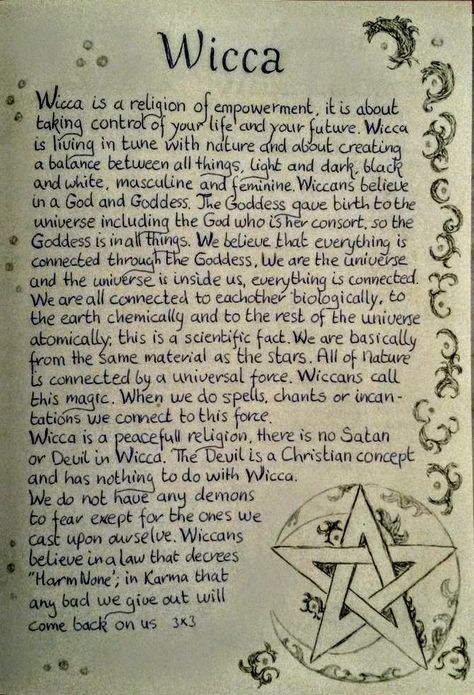 Wicca
Wicca is a religion of empowerment, it is about
taking control of your life and your future. Wicca
is living in tune with nature and about creating
a balance between all things, light and dark, black
and white, masculine and feminine. Wiccans believe
in a God and Goddess. The Goddess gave birth to the
universe including the God who is her consort, so the
Goddess is in all things. We believe that everything is
connected through the Goddess, We are the universe
and the universe is inside us, everything is connected.
We are all connected to eachother biologically, to
the earth chemically and to the rest of the universe
atomically; this is a scientific fact. We are basically
from the same material as the stars. All of Nature
is connected by a universal force. Wiccans call
this magic. When we do spells, chants or incan-
tations we connect to this force.
Wicca is a peacefull religion, there is no Satan
or Devil in Wicca. The Devil is a Christian concept
and has nothing to do with Wicca.
We do not have any demons
to fear exept for the ones we
cast upon ourselve. Wiccans
believe in a law that decrees
"Harm None'; in Karma that
any bad we give out will
come back on us 3x3